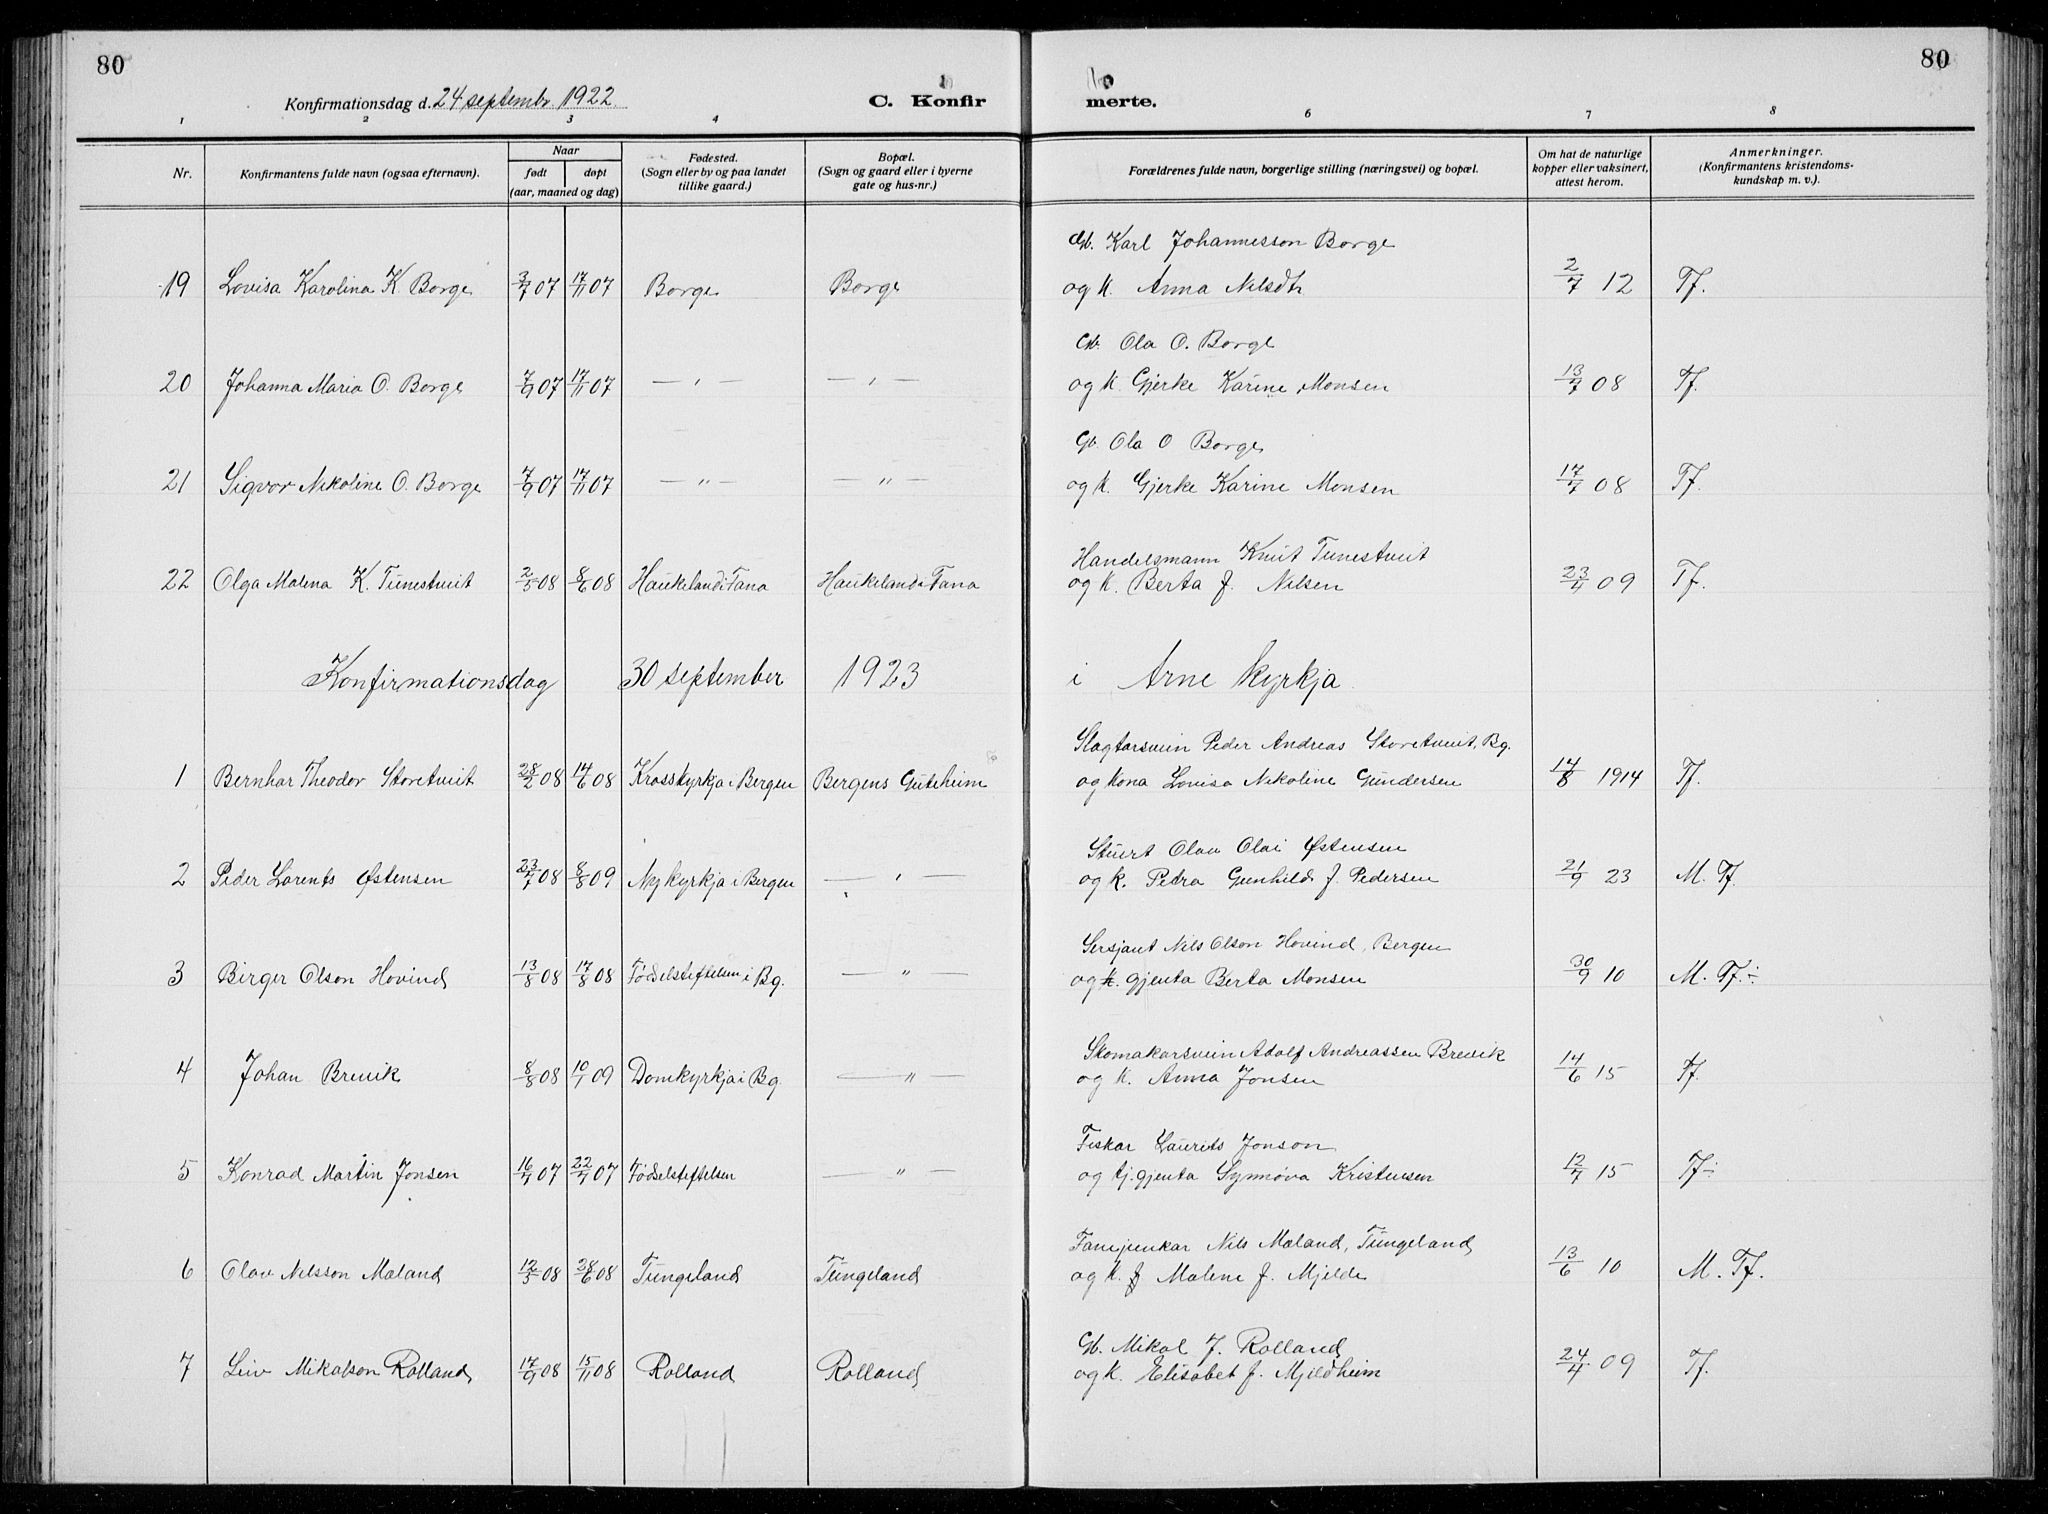 80
80
Konfirmationsdag d. 24 septembr. 1922
C. Konfirmerte.
1 2 3 4 6 7 8
Nr. Konfirmantens fulde navn (ogsaa efternavn). Naar født døpt (aar, maaned og dag) Fødested. (Sogn eller by og paa landet tillike gaard.) Bopæl. (Sogn og gaard eller i byerne gate og hus-nr.) Forældrenes fulde navn, borgerlige stilling (næringsvei) og bopæl. Om hat de naturlige kopper eller vaksinert, attest herom. Anmerkninger. (Konfirmantens kristendomskundskap m. v.).
Gb. Karl Johannesson Borge
19 Lovisa Karolina K. Borge 3/7 07 17/11 07 Borge Borge og k. Anna Nilsdtr 2/7 12 Tf.
Gb. Ola O. Borge
20 Johanna Maria O. Borge 7/9 07 17/11 07 — " — — " — og k. Gjerke Karine Monsen 13/7 08 Tf.
Gb. Ola O Borge
21 Sigvor Nikoline O. Borge 7/9 07 17/11 07 — " — — " — og k. Gjerke Karine Monsen 17/7 08 Tf.
Handelsmann Knut Tunestveit
22 Olga Malena K. Tunestveit 2/5 08 8/6 08 Haukeland i Fana Haukeland i Fana og k. Berta f. Nilsen 23/4 09 Tf.
Konfirmationsdag 30 september 1923 i Arne kyrkja
Slagtarsvein Peder Andreas Storetveit, Bg.
1 Bernhar Theodor Storetveit 28/2 08 14/6 08 Krosskyrkja i Bergen Bergens Guteheim og kona Lovisa Nikoline Gundersen 14/8 1914 Tf.
Stuert Olav Olai Østensen
2 Peder Lorents Østensen 23/7 08 8/8 09 Nykyrkja i Bergen — " — og k. Pedra Gunhild f. Pedersen 21/9 23 M. Tf.
Sersjant Nils Olson Hovind, Bergen
3 Birger Olson Hovind 13/8 08 17/8 08 Fødselsteftelsen i Bg. — " — og k. gjenta Berta Monsen 30/9 10 M. Tf. ÷
Skomakarsvein Adolf Andreassen Brevik
4 Johan Brevik 8/8 08 10/1 09 Domkyrkja i Bg. — " — og k. Anna Jonsen 14/6 15 Tf.
Fiskar Laurits Jonson
5 Konrad Martin Jonsen 16/4 07 22/4 07 Fødselsteftelsen — " — og tj. gjenta Synnøva Kristensen 12/7 15 Tf ÷
Fanejunkar Nils Maland, Tungeland
6 Olav Nilsson Maland 12/5 08 28/6 08 Tungeland Tungeland og k. f Malene f. Mjelde 13/6 10 M. Tf.
Gb. Mikal J. Rolland
7 Leiv Mikalson Rolland 17/9 08 15/11 08 Rolland Rolland og k. Elisabet f. Mjeldheim 24/4 09 Tf.